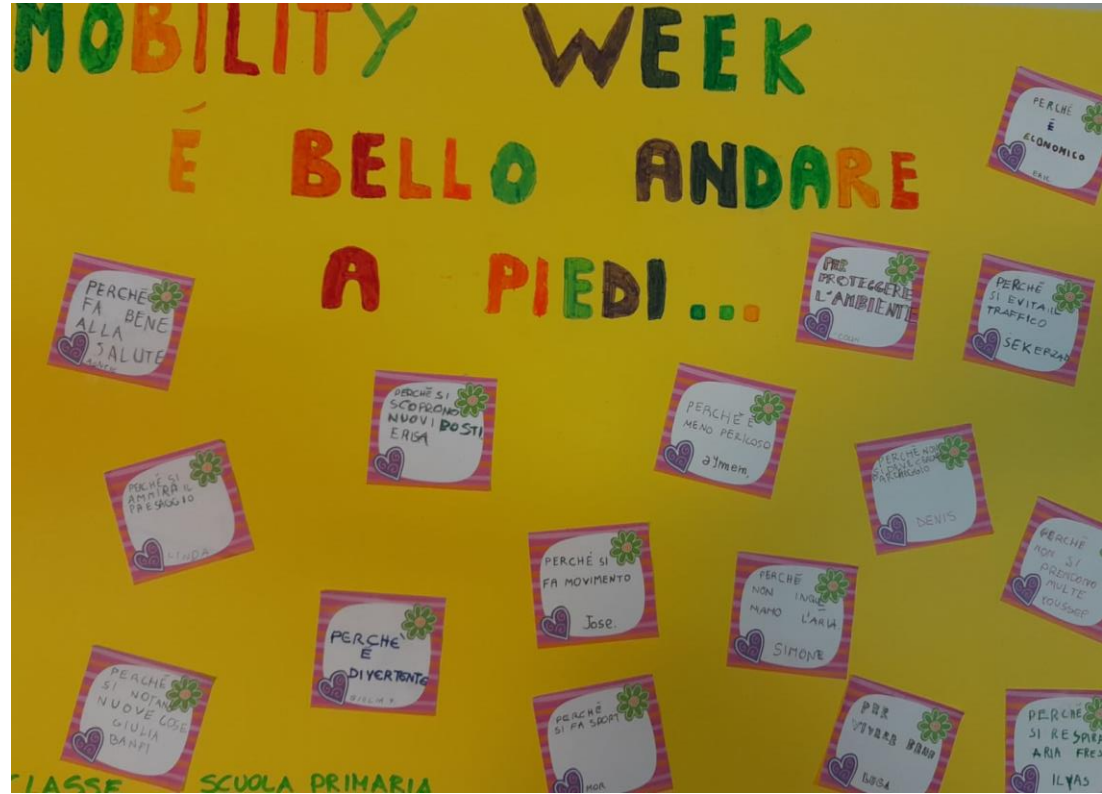 MOBILITY WEEK
É BELLO ANDARE
A PIEDI...
PERCHÉ
È
ECONOMICO
ERIC
PERCHÉ
FA BENE
ALLA
SALUTE
PER
PROTEGGERE
L'AMBIENTE
PERCHÉ
SI EVITA IL
TRAFFICO
SEKERZAD
PERCHÉ SI
SCOPRONO
NUOVI POSTI
ERISA
PERCHÉ È
MENO PERICOLOSO
aymem,
PERCHÉ SI
AMMIRA IL
PAESAGGIO
LINDA
PERCHÉ NON
PARCHEGGIO
DENIS
PERCHÉ SI
FA MOVIMENTO
Jose.
PERCHÉ
NON INQUI
NAMO L'ARIA
SIMONE
PERCHÉ
NON SI
PRENDONO
MULTE
YOUSSEF
PERCHE'
È
DIVERTENTE
PERCHÉ
SI NOTANO
NUOVE COSE
GIULIA
BANPI
PERCHÉ
SI FA SPORT
PER
VIVERE BENE
PERCHÉ
SI RESPIRA
ARIA FRES
ILYAS
CLASSE SCUOLA PRIMARIA